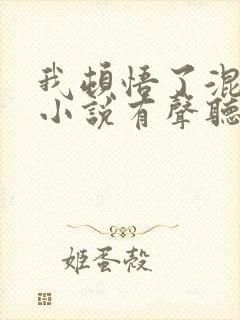 我頓悟了混
小說有聲聽
姬蛋殼